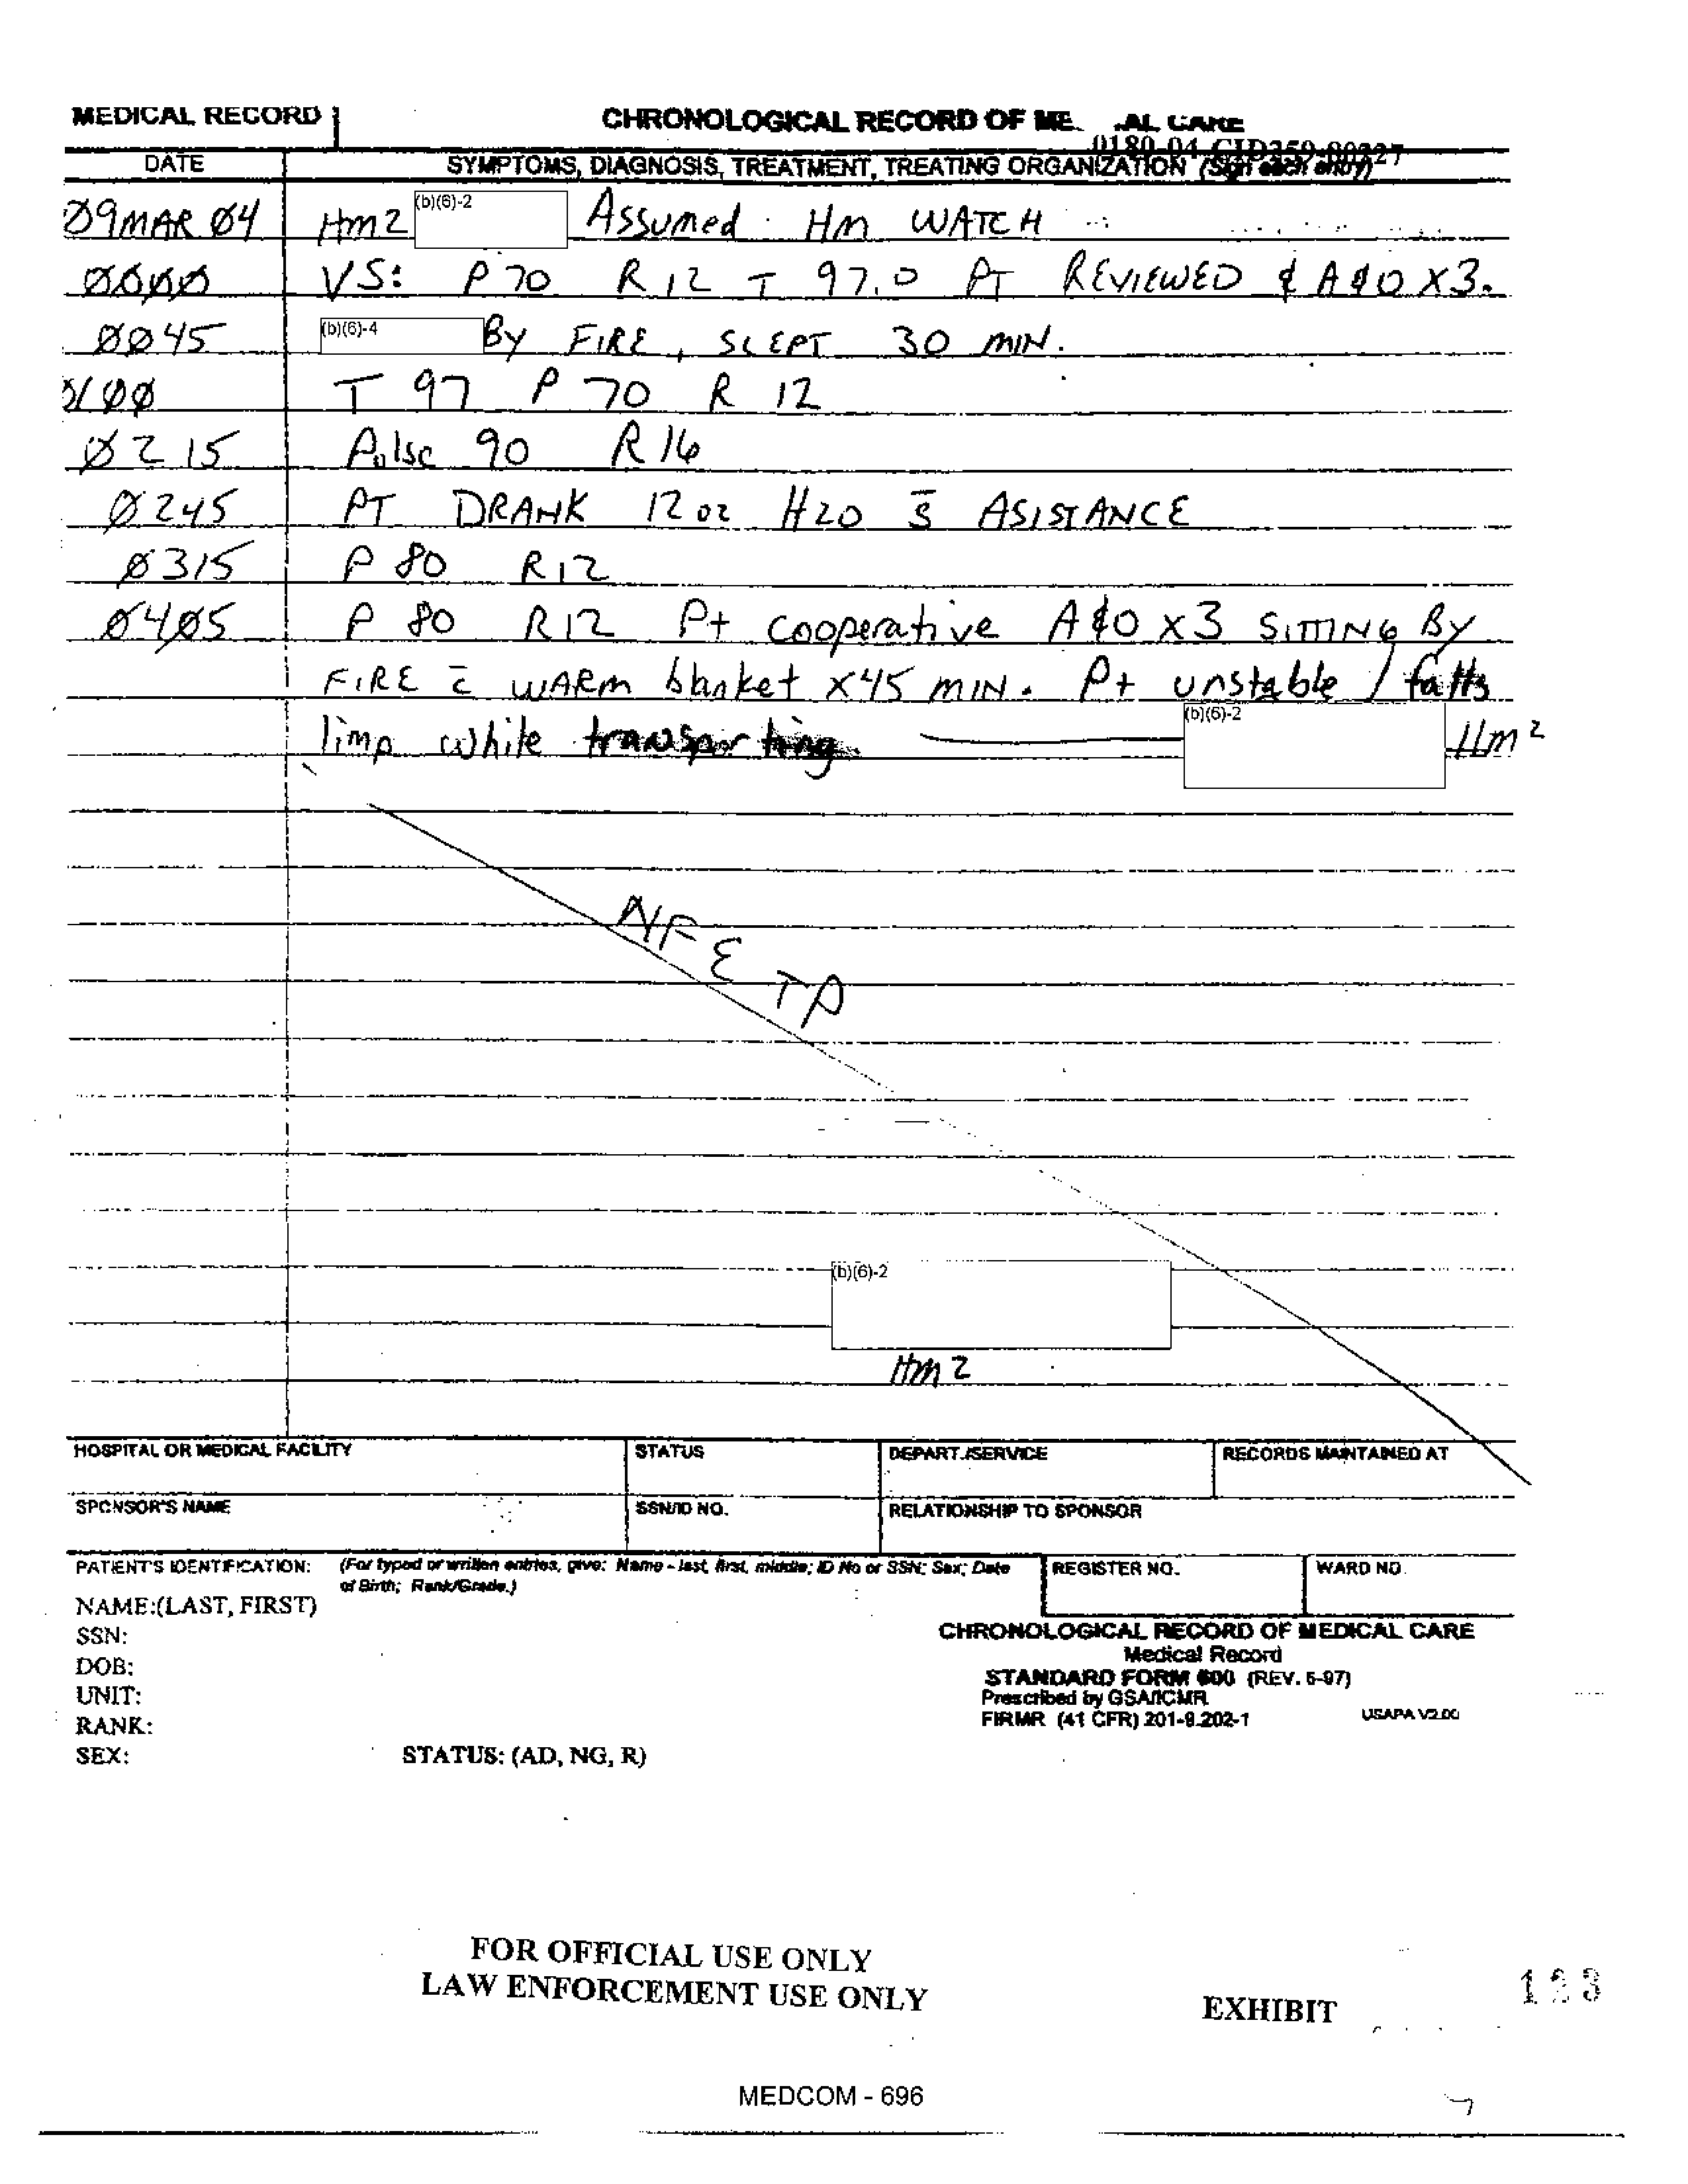 MEDICAL RECORD
CHRONOLOGICAL RECORD OF ME AL CARE
0180-04-CID359-80227
DATE
SYMPTOMS, DIAGNOSIS, TREATMENT, TREATING ORGANIZATION (Sign each entry)
09MAR 04 Hm2 (b)(6)-2 Assumed Hm WATCH
0000 VS: P 70 R 12 T 97.0 PT REVIEWED & A&O X3.
0045 (b)(6)-4 By FIRE, SLEPT 30 MIN.
0100 T 97 P 70 R 12
0215 Pulse 90 R 16
0245 PT DRANK 12 oz H2O s̄ ASISTANCE
0315 P 80 R12
0405 P 80 R12 Pt cooperative A&O X3 SITTING By
FIRE c̄ WARM blanket X45 MIN. Pt unstable / falls
limp while transporting (b)(6)-2 Hm2
NFE TP
(b)(6)-2
Hm2
HOSPITAL OR MEDICAL FACILITY
STATUS
DEPART./SERVICE
RECORDS MAINTAINED AT
SPONSOR'S NAME
SSN/ID NO.
RELATIONSHIP TO SPONSOR
PATIENT'S IDENTIFICATION: (For typed or written entries, give: Name - last, first, middle; ID No or SSN; Sex; Date
of Birth; Rank/Grade.)
REGISTER NO.
WARD NO.
NAME:(LAST, FIRST)
SSN:
DOB:
UNIT:
RANK:
SEX:
STATUS: (AD, NG, R)
CHRONOLOGICAL RECORD OF MEDICAL CARE
Medical Record
STANDARD FORM 600 (REV. 6-97)
Prescribed by GSA/ICMR
FIRMR (41 CFR) 201-9.202-1
USAPA V2.00
FOR OFFICIAL USE ONLY
LAW ENFORCEMENT USE ONLY
EXHIBIT
123
MEDCOM - 696